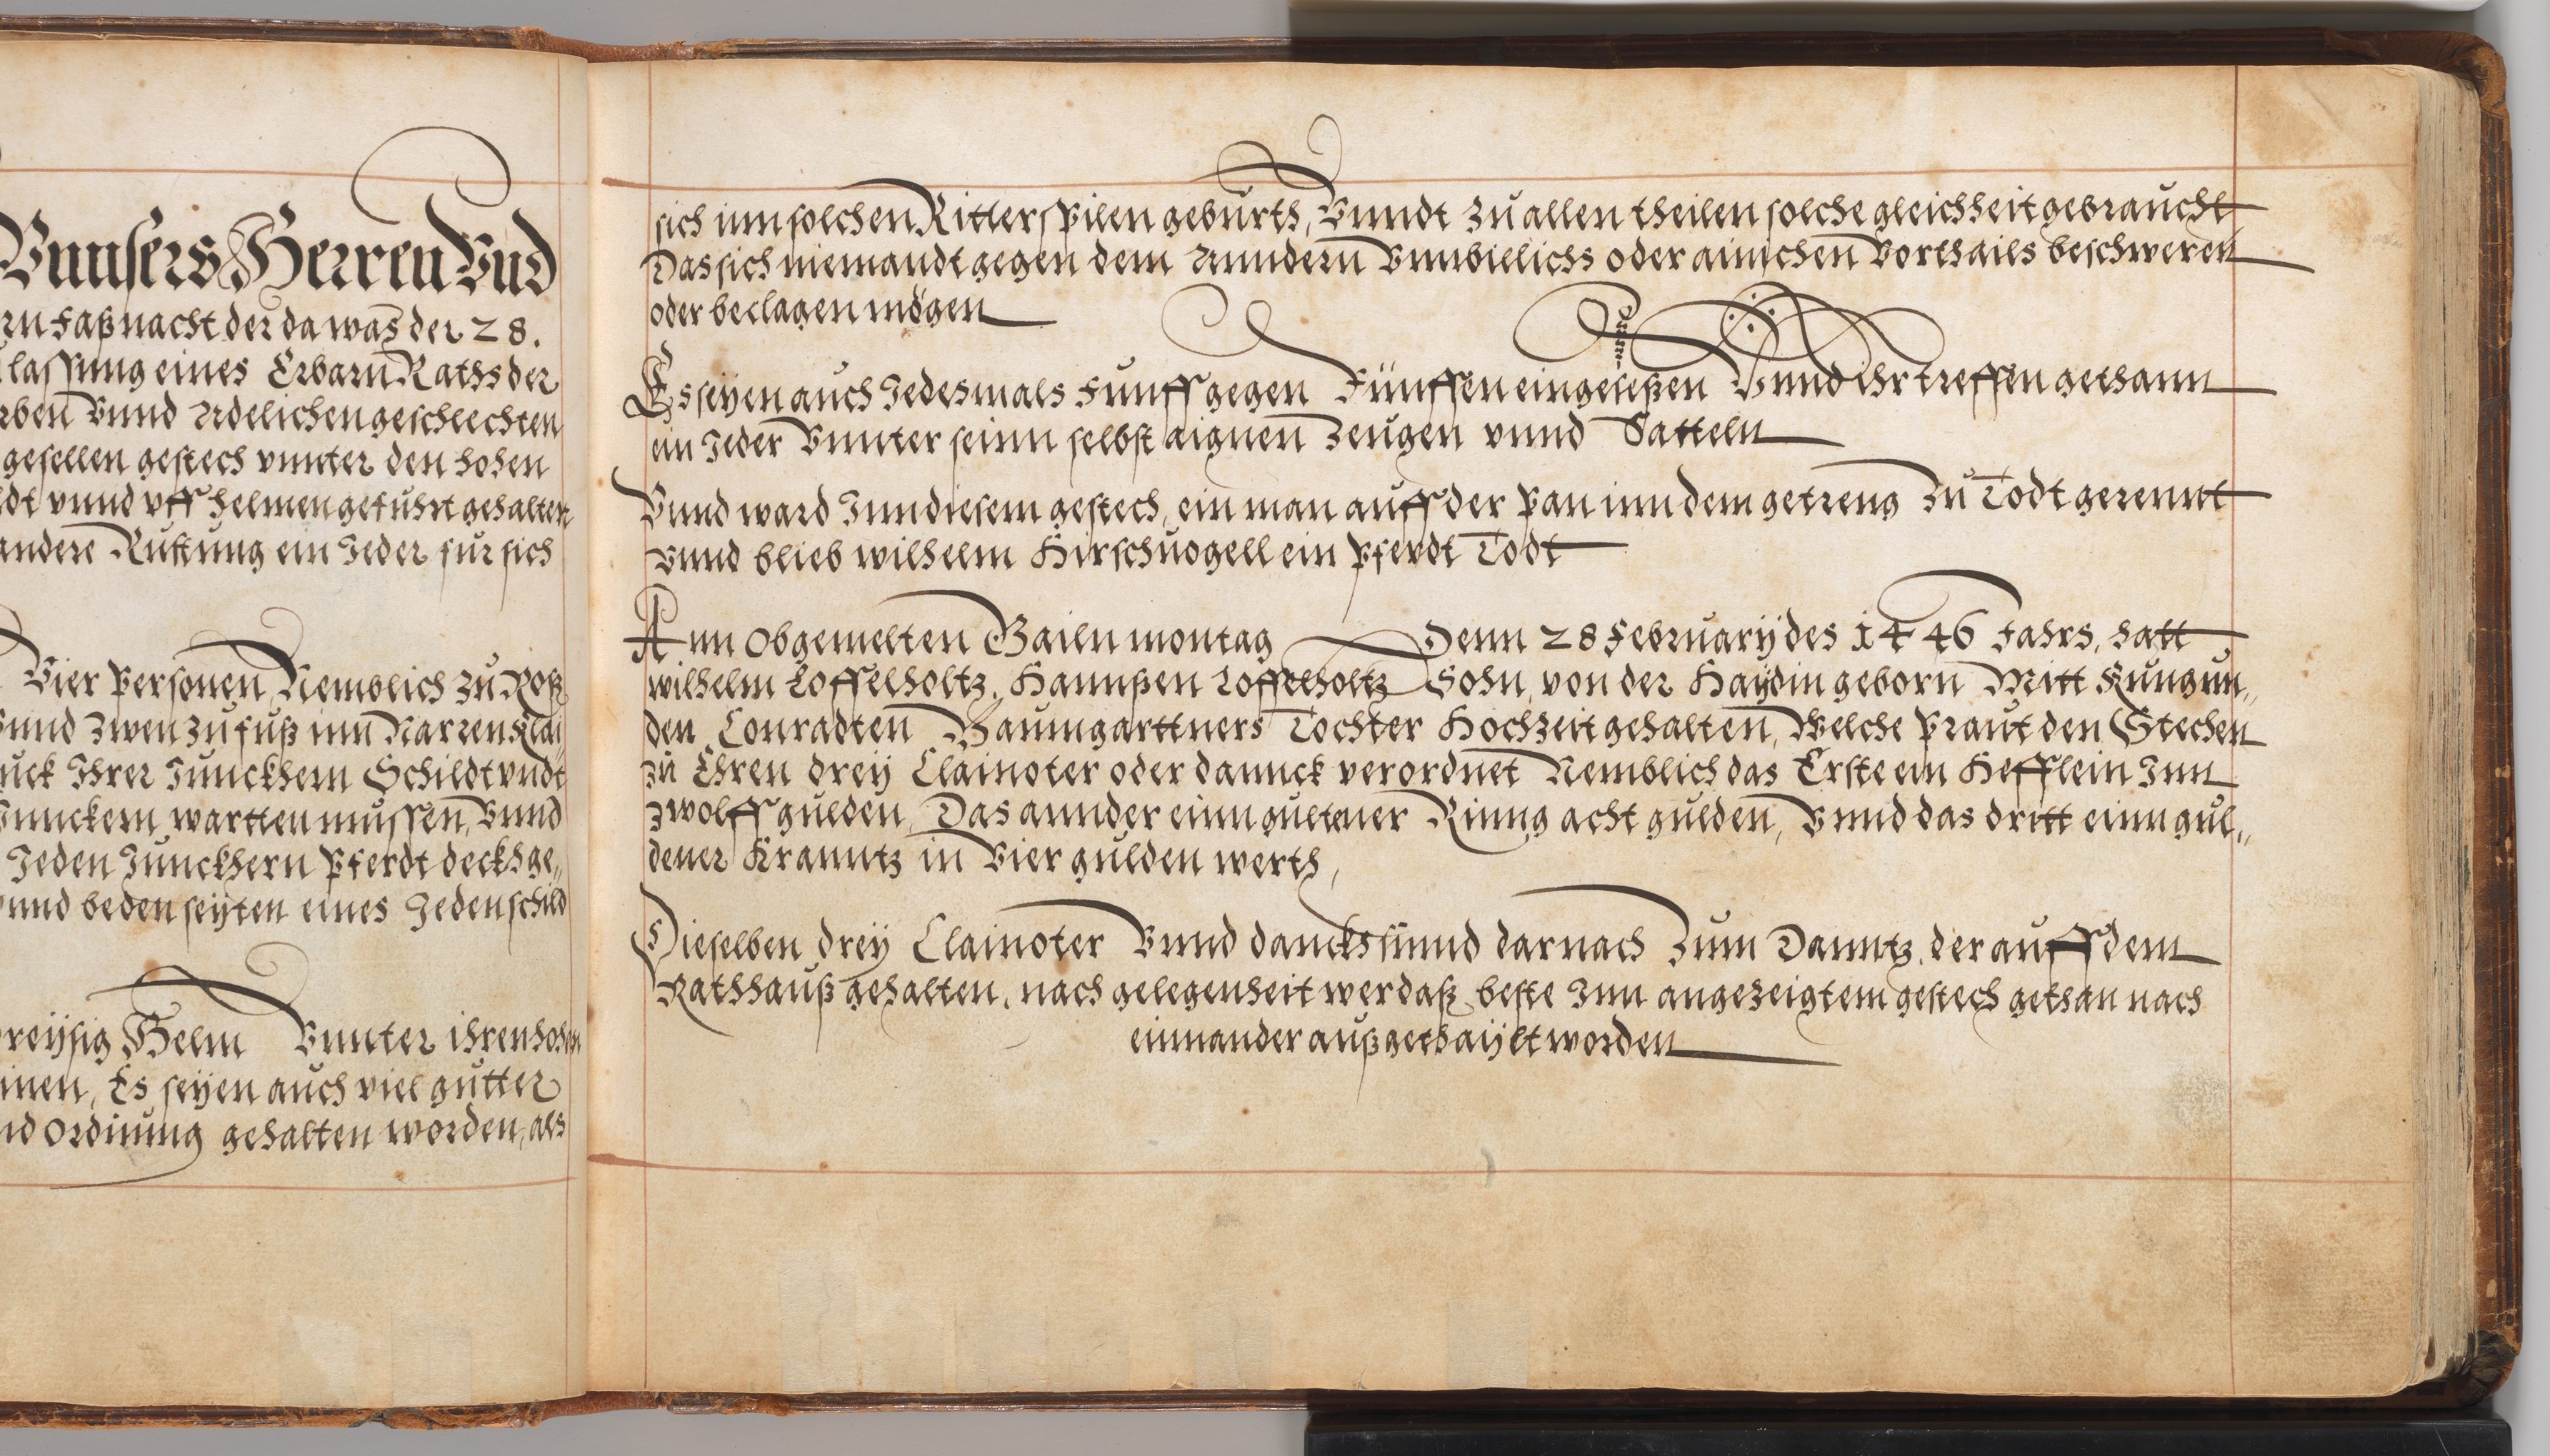 Vnnsers Herren Vnd
rn Faßnacht der da was der 28.
lassung eines Erbarn Raths der
rben Vnnd Adelichen geschlechten
gesellen gestech vnnter den hohen
ldt vnnd vff helmen gefuhrt gehalten
andere Rustung ein Jeder fur sich
Vier Personen, Nemblich zu Roß
vnnd zwen zu fuß inn Narren Klai¬
uck Ihrer Junckhern Schildt vndt
Junckern wartten mussen, Vnnd
Jeden Junckhern Pferdt deckh ge„
vnnd beden seyten eines Jeden schild
reysig Helm Vnnter ihren hohen
inen, Es seyen auch viel gutter
nd Ordnung gehalten worden, als
sich inn solchen Ritterspilen geburth, Vnndt zu allen theilen solche gleichheit gebraucht
Das sich niemandt gegen dem Anndern Vnnbielichs oder ainichen Vorthails beschweren
oder beclagen mögen
Es seyen auch Jedesmals Funff gegen Fünffen eingeseßen Vnnd ihr treffen gethann
ein Jeder Vnnter seinn selbst aignen Zeugen vnnd Satteln
Vnnd ward Inn diesem gestech, ein man auff der Pan inn dem getreng zu Todt gerennt
Vnnd blieb wilhelm Hirschuogell ein Pferdt Todt
Ann Obgemelten Gailn montag Denn 28 February des 1446 Jahrs, hatt
wilhelm Loffelholtz, Hannßen Loffelholtz Sohn, von der Haydin geborn Mitt Kungun„
den Conradten Baumgarttners Tochter Hochzeit gehalten, Welche Praut den Stechen
zu Ehren drey Clainoter oder dannck verordnet Nemblich das Erste ein Hefftlein Inn
zwolff gulden, Das annder einn gultener Rinng acht gulden, Vnnd das dritt einn gul„
dener Kranntz in Vier gulden werth,
Dieselben drey Clainoter Vnnd dancks sinnd darnach Zum Danntz, der auff dem
Rathhauß gehalten, nach gelegenheit wer daß beste Inn angezeigtem gestech gethan nach
einnander auß gethaylt worden